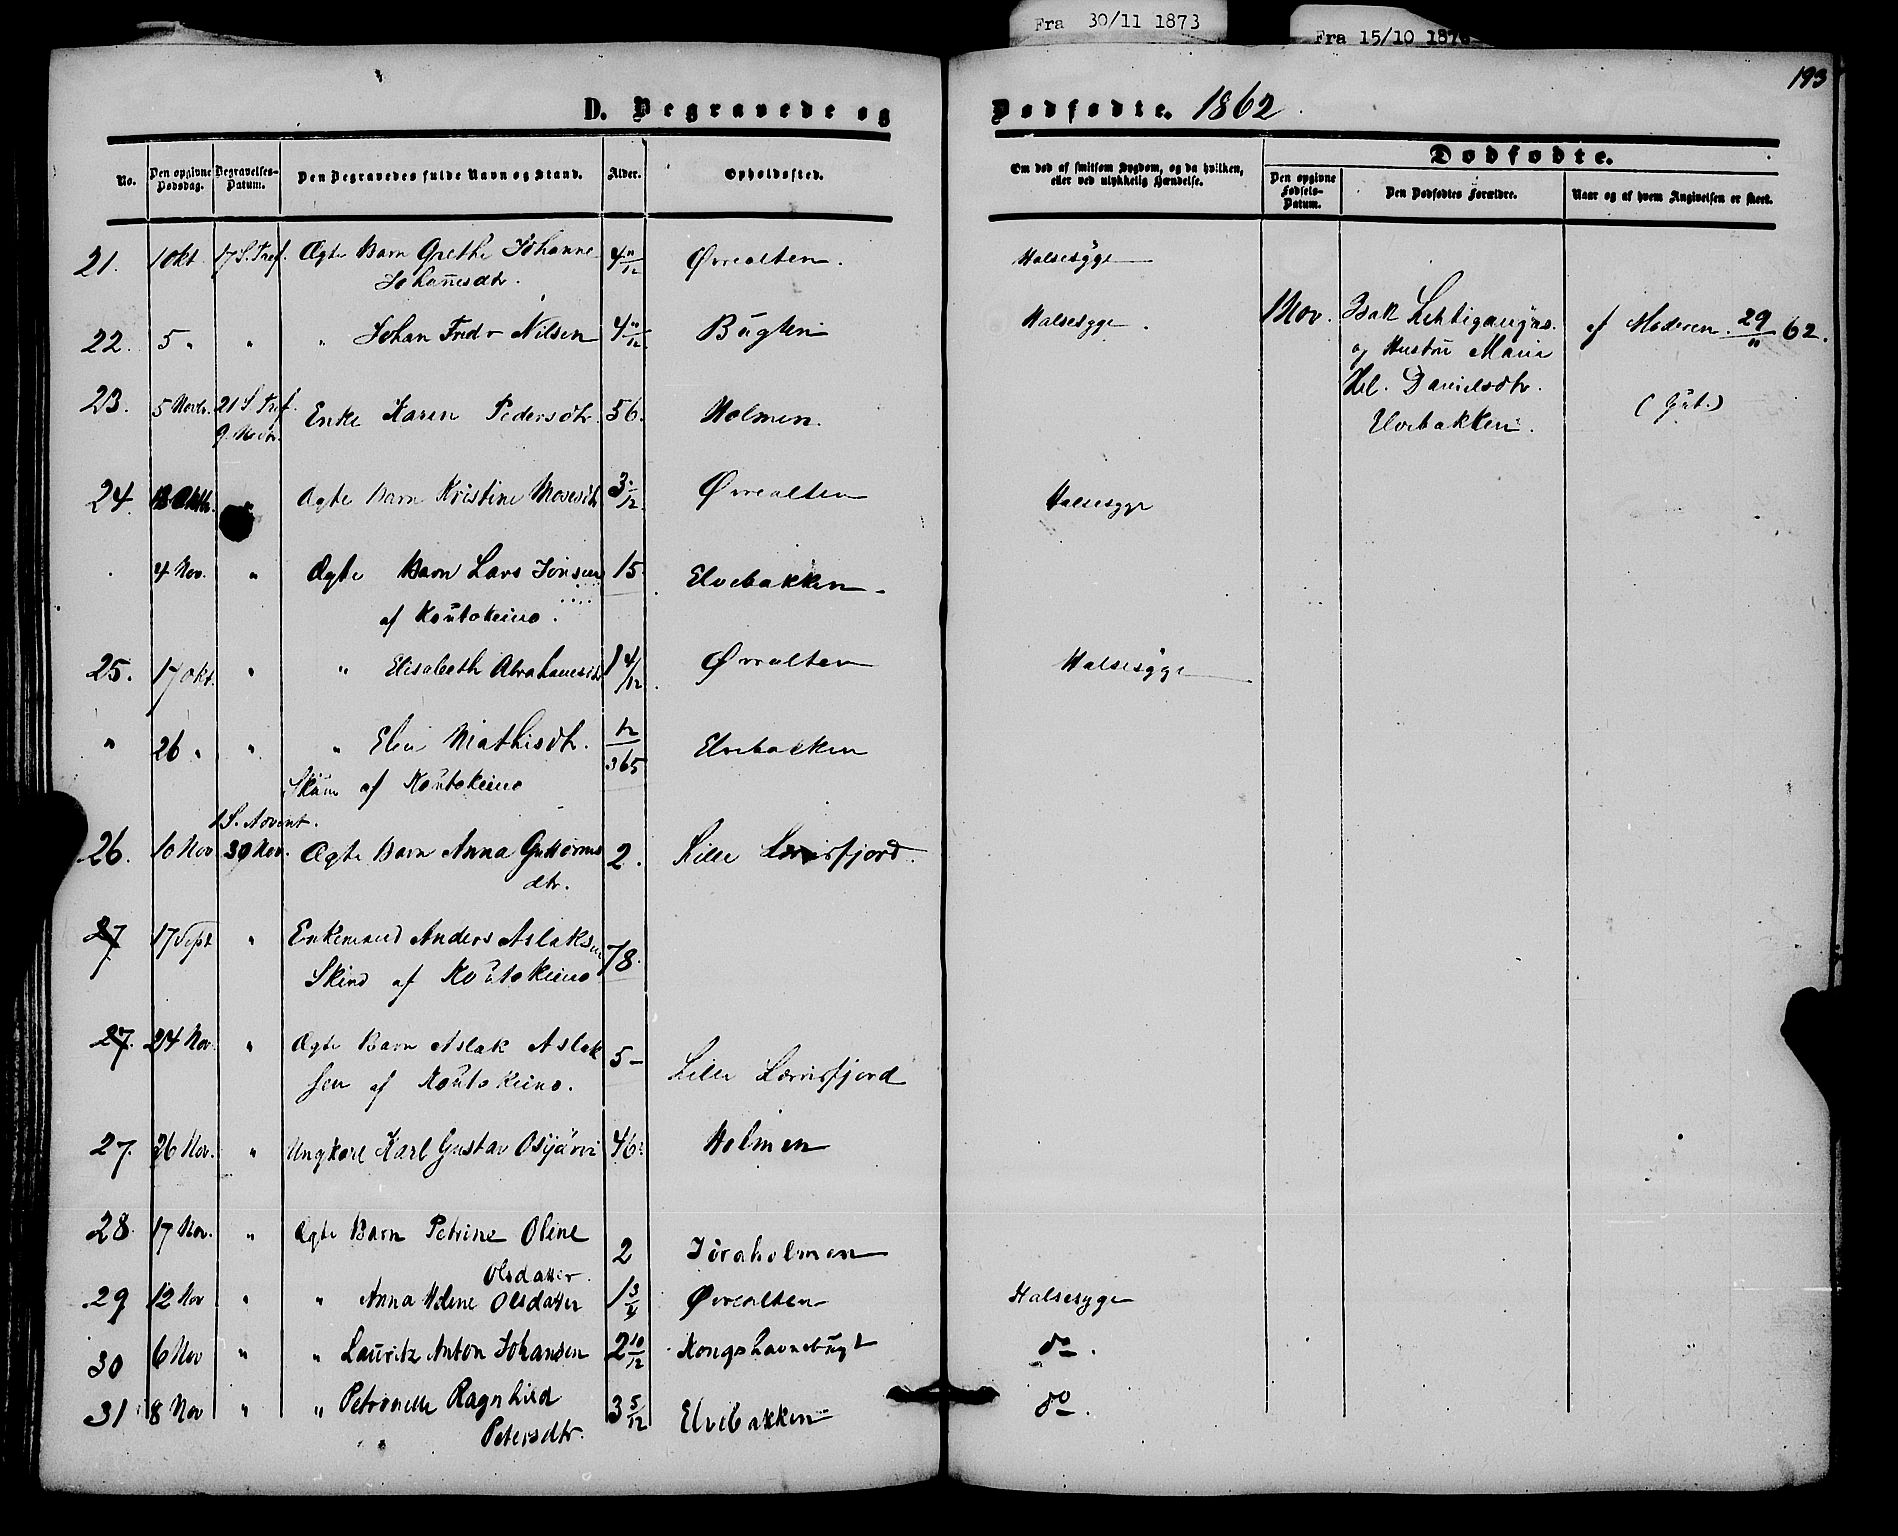 Fra 30/11 1873
Fra 15/10 187
193
D. Begravede og Dødfødte. 1862
No.
Den opgivne Dødsdag.
Begravelses-Datum.
Den Begravedes fulde Navn og Stand.
Alder.
Opholdssted.
Om død af smitsom Sygdom, og da hvilken,
eller ved ulykkelig Hændelse.
Dødfødte.
Den opgivne Fødsels-Datum.
Den Dødfødtes Forældre.
Naar og af hvem Angivelsen er skeet.
21. 1 Okt. 17 S. Tref. Ægte Barn Grethe Johanne 4 11/12 Øvrealten. Halsesyge
Johannesdtr.
22. 5 " " " Johan Fredr Nilsen 4 11/12 Bugten Halsesyge.
1 Nov. Isak
og Hustru Maria
Hel. Danielsdtr.
Elvebakken.
af Moderen 29/11 62.
23. 5 Novbr. 21 S. Tref. Enke Karen Pedersdtr. 56. Holmen.
9. Novbr.
24. " Ægte Barn Kristine Mosesdtr 3 /12. Øvrealten Halsesyge
4 Nov. " Ægte Barn Lars Jonsen 15 Elvebakken.
af Koutokeino.
25. 17 Okt. " " Elisabeth Abrahamsdtr 1 4/12. Øvrealten Halsesyge
" 26 " " " Elen Mathisdtr. 12/365 Elvebakken
af Koutokeino
1 S. Advent.
26. 10 Nov 30 Nov. Ægte Barn Anna Guttorms 2. Lille Lerrisfjord.
dtr.
27 17 Sept " Enkemand Anders Aslaksen 78.
Skind af Koutokeino
27. 24 Nov. " Ægte Barn Aslak Aslak 5 – Lille Lerrisfjord
sen af Koutokeino.
27. 26 Nov. " Ungkarl Karl Gustav Osijärvi 46 Holmen
28. 17 Nov. " Ægte Barn Petrine Oline 2 Joraholmen
Olsdatter.
29 12 Nov " " Anna Helene Olsdatter 1 3/4 Øvrealten Halsesyge
30 6 Nov " " Lauritz Anton Johansen 2 10/12 Kongshavnebugt do.
31 8 Nov " " Petronelle Ragnhild 3 5/12 Elvebakken do.
Petersdtr.